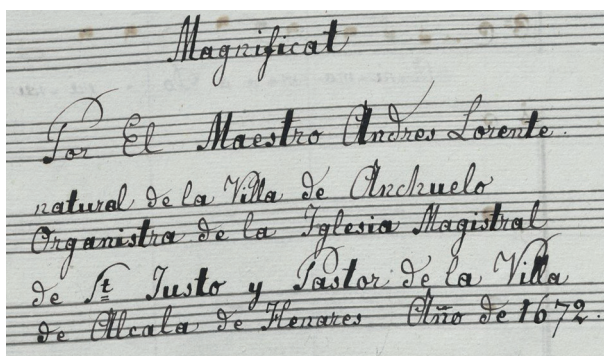 Magnificat
Por El Maestro Andres Lorente.
natural de la Villa de Anchuelo
Organistra de la Iglesia Magistral
de St Justo y Pastor de la Villa
de Alcala de Henares Año de 1672.